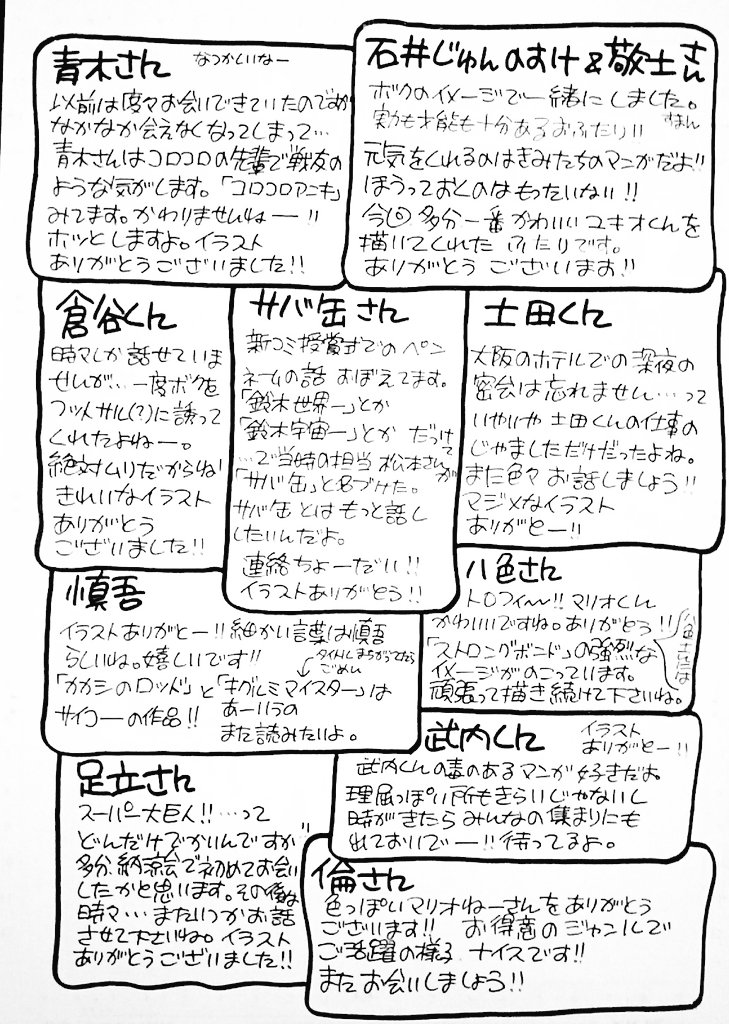 青木さん
なつかしいなー
以前は度々お会いできていたのですが
なかなか会えなくなってしまって…
青木さんはコロコロの先輩で戦友の
ような気がします。「コロコロアニキ」
みてます。かわりませんねー!!
ホッとしますよ。イラスト
ありがとうございました!!
石井じゅんのすけ&敬士さん
ボクのイメージで一緒にしました。
すまん
実力も才能も十分あるおふたり!!
元気をくれるのはきみたちのマンガだよ!!
ほうっておくのはもったいない!!
今回多分一番かわいいユキオくんを
描いてくれた ふたりです。
ありがとう ございます!!
倉谷くん
時々しか話せていま
せんが…一度ボクを
フットサル(?)に誘って
くれたよねー。
絶対ムリだからね!
きれいなイラスト
ありがとう
ございました!!
サバ缶さん
新コミ授賞式でのペン
ネームの話 おぼえてます。
「鈴木世界一」とか
「鈴木宇宙一」とか だっけ
…で当時の担当 松本さんが
「サバ缶」と名づけた。て
サバ缶とはもっと話し
したいんだよ。
連絡ちょーだい!!
イラストありがとう!!
土田くん
大阪のホテルでの深夜の
密会は忘れません…って
いやいや土田くんの仕事の
じゃましただけだったよね。
また色々お話しましょう!!
マジメなイラスト
ありがとー!!
慎吾
イラストありがとー!!細かい言葉は慎吾
らしいね。嬉しいです!!
タイトルまちがってたら
ごめん
「カカシのロッド」と「キグルミマイスター」は
サイコーの作品!!
あーいうの
また読みたいよ。
八色さん
トロフィ〜!!マリオくん
かわいいですね。ありがとう!!
八色さんは
「ストロングボンド」の強烈な
イメージがのこっています。
頑張って描き続けて下さいね。
足立さん
スーパー大巨人!!…って
どんだけでかいんですか!!
多分、納涼会で初めてお会い
したかと思います。その後は
時々…またいつかお話
させて下さいね。イラスト
ありがとうございました!!
武内くん
イラスト
ありがとー!!
武内くんの毒のあるマンガ好きだよ。
理屈っぽい所もきらいじゃないし
時ができたらみんなの集まりにも
出ておいでー!!待ってるよ。
倫さん
色っぽいマリオねーさんをありがとう
ございます!! お得意のジャンルで
ご活躍の様子 ナイスです!!
またお会いしましょう!!